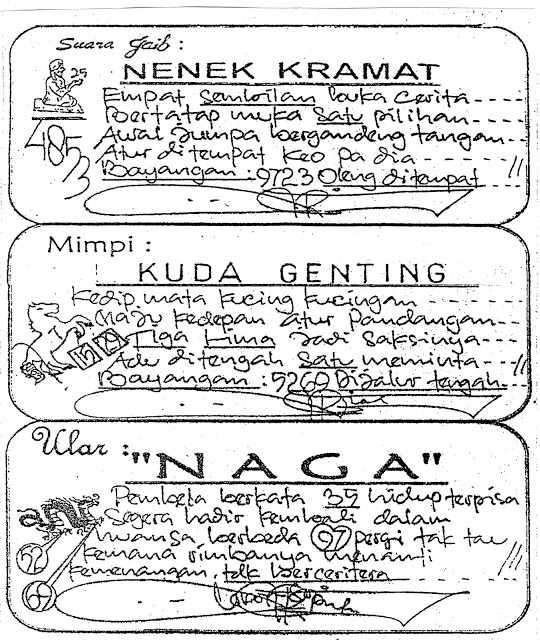 Suara Gaib :
25
NENEK KRAMAT
Empat Sembilan buka Cerita
Bertatap muka Satu pilihan
485
Awal Jumpa bergandeng tangan
3
Atur ditempat Keo pa dia
Bayangan : 9723 Oleng ditempat
Mimpi :
KUDA GENTING
Kedip mata kucing kucingan
Maju kedepan atur Pandangan
Tiga Lima Jadi Saksinya
Adu ditengah Satu meminta
Bayangan : 5269 Dijalur tengah
Ular :
"NAGA"
Pembeta berkata 35 hidup terpisa
Segera hadir kembali dalam
nuansa berbeda 07 pergi tak tau
52
kemana rimbanya menanti
kemenangan, tdk berceritera